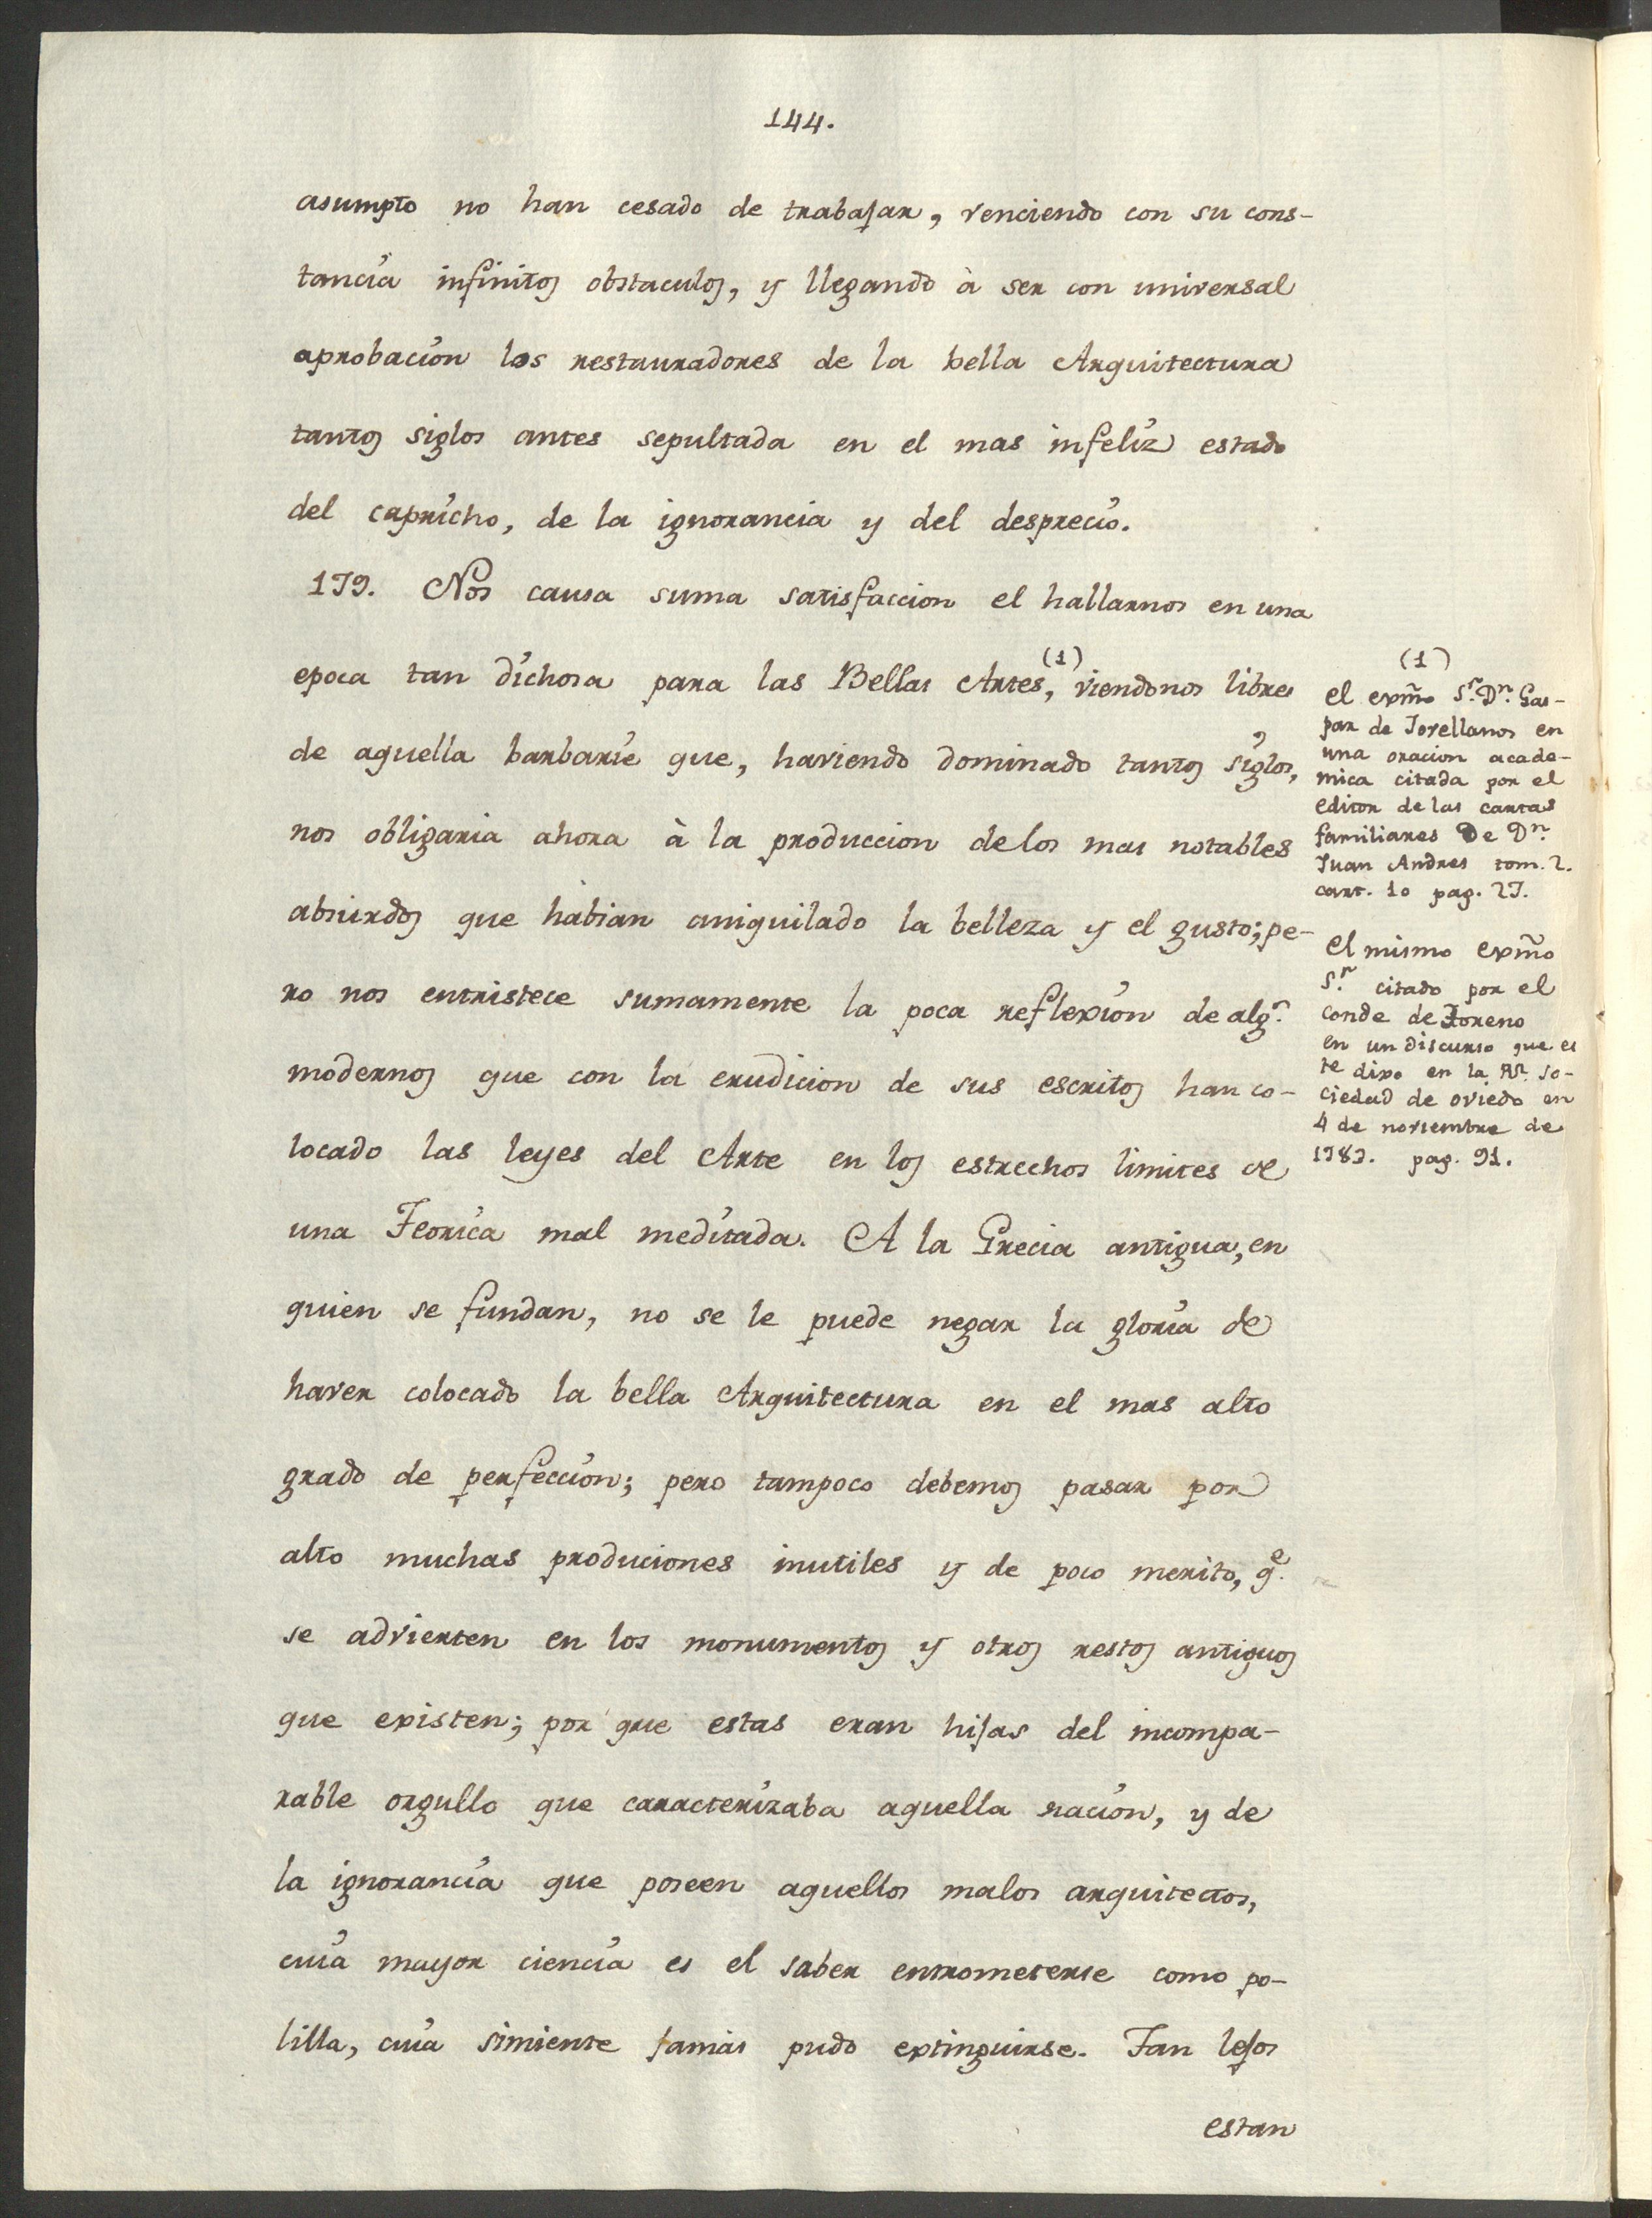 144.
asumpto no han cesado de trabajar, venciendo con su cons-
tancia infinitos obstaculos, y llegando à ser con universal
aprobacion los restauradores de la bella Arquitectura
tantos siglos antes sepultada en el mas infeliz estado
del capricho, de la ignorancia y del desprecio.
179. Nos causa suma satisfaccion el hallarnos en una
epoca tan dichosa para las Bellas Artes, (1) viendonos libres
de aquella barbarie que, haviendo dominado tantos siglos,
nos obligaria ahora à la produccion de los mas notables
absurdos que habian aniquilado la belleza y el gusto; pe-
ro nos entristece sumamente la poca reflexion de algs.
modernos que con la erudicion de sus escritos han co-
locado las leyes del Arte en los estrechos limites de
una Teorica mal meditada. A la Grecia antigua, en
quien se fundan, no se le puede negar la gloria de
haver colocado la bella Arquitectura en el mas alto
grado de perfeccion; pero tampoco debemos pasar por
alto muchas produciones inutiles y de poco merito, qe.
se advierten en los monumentos y otros restos antiguos
que existen; por que estas eran hijas del incompa-
rable orgullo que caracterizaba aquella nacion, y de
la ignorancia que poseen aquellos malos arquitectos,
cuia mayor ciencia es el saber entrometerse como po-
lilla, cuia simiente jamas pudo extinguirse. Tan lejos
estan
(1)
el exmo Sr. Dn. Gas-
par de Jovellanos en
una oracion acade-
mica citada por el
editor de las cartas
familiares De Dn.
Juan Andres tom. 2.
cart. 10 pag. 27.
el mismo exmo
Sr. citado por el
conde de Toreno
en un discurso que es
te dixo en la Rl. So-
ciedad de oviedo en
4 de noviembre de
1783. pag. 91.